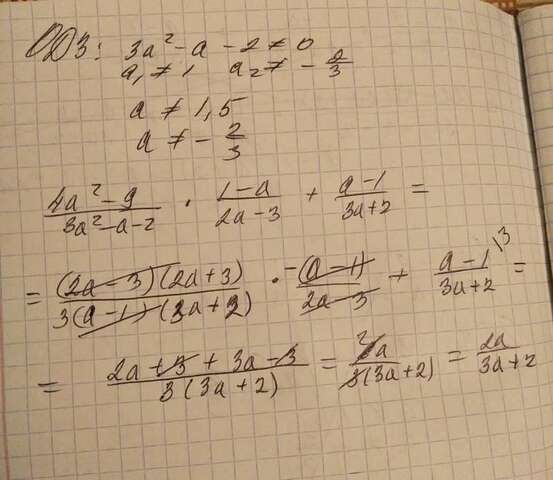 ОДЗ: 3a² - a - 2 ≠ 0
a₁ ≠ 1 a₂ ≠ - 2/3
a ≠ 1,5
a ≠ - 2/3
(4a² - 9)/(3a² - a - 2) · (1 - a)/(2a - 3) + (a - 1)/(3a + 2) =
= ((2a - 3)(2a + 3))/(3(a - 1)(3a + 2)) · (-(a - 1))/(2a - 3) + (a - 1)/(3a + 2) \3 =
= (2a + 3 + 3a - 3)/(3(3a + 2)) = a/(3(3a + 2)) = 2a/(3a + 2)